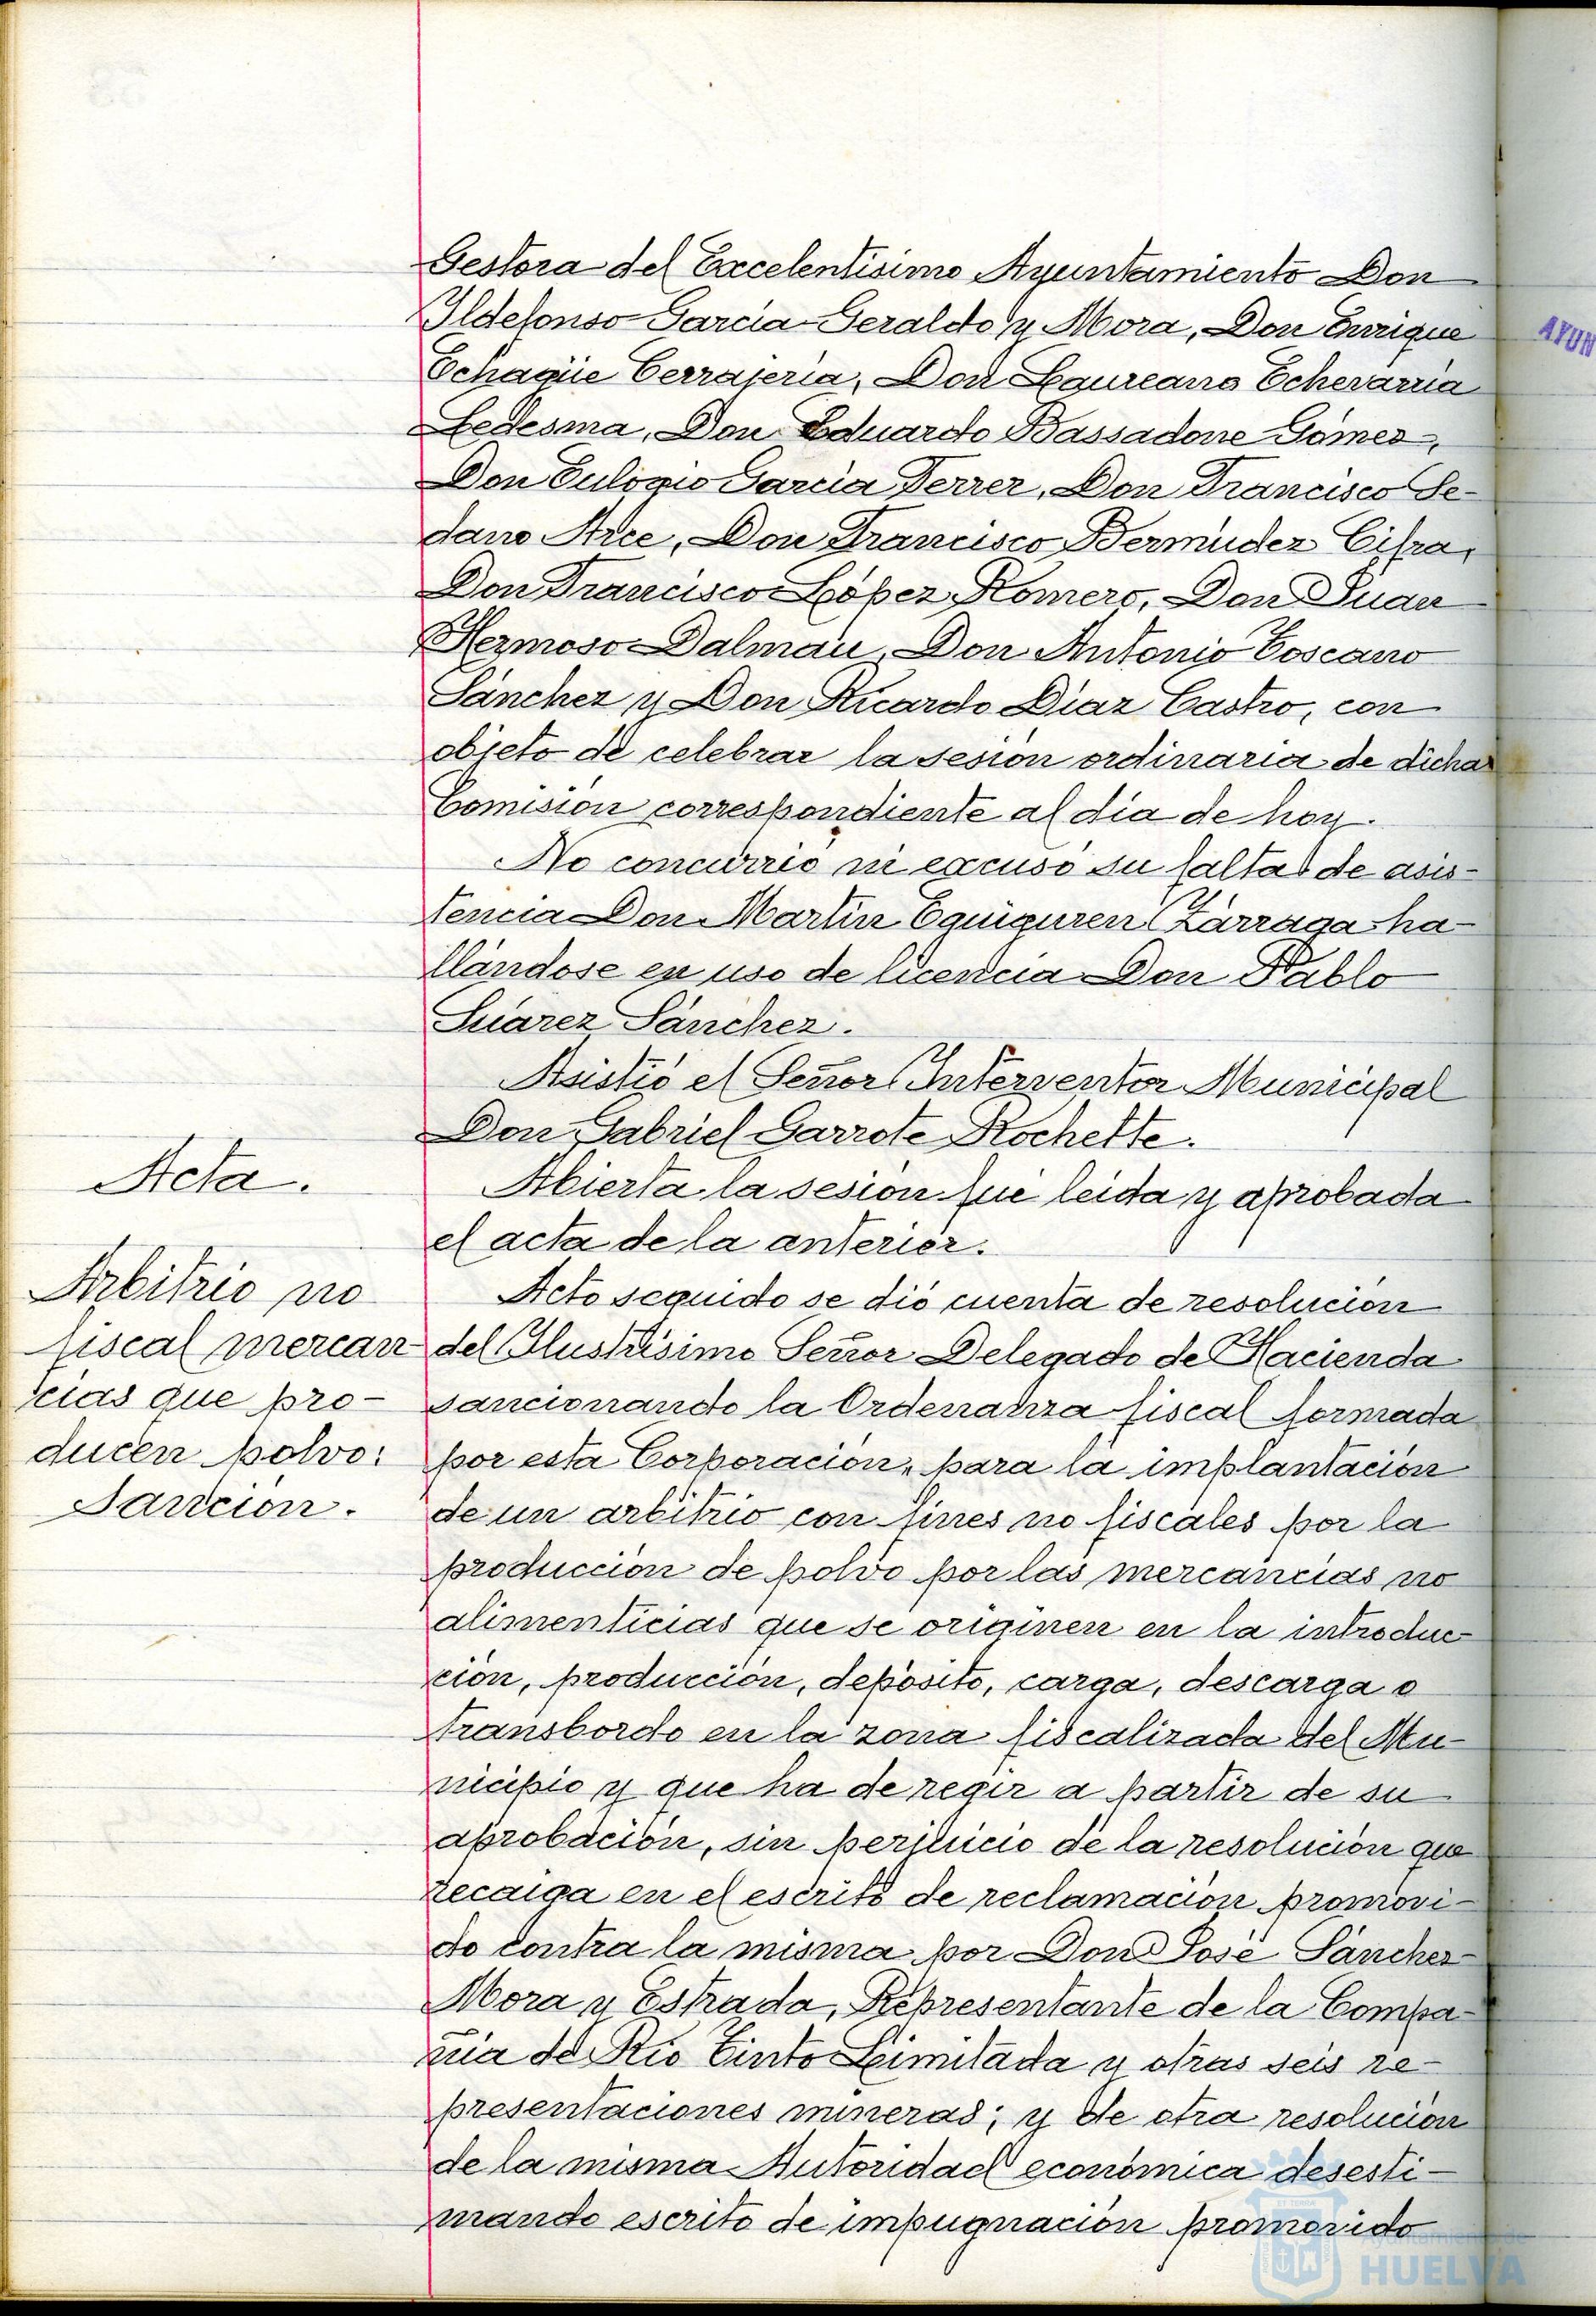 Gestora del Excelentisimo Ayuntamiento Don
Ildefonso Garcia-Geraldo y Mora, Don Enrique
Echagüe Cerrajeria, Don Laureano Echevarria
Ledesma, Don Eduardo Bassadone Gómez,
Don Eulogio Garcia Ferrer, Don Francisco Se-
dano Arce, Don Francisco Bermúdez Cifra,
Don Francisco López Romero, Don Juan
Hermoso Dalmau, Don Antonio Toscano
Sánchez y Don Ricardo Díaz Castro, con
objeto de celebrar la sesión ordinaria de dicha
Comisión correspondiente al día de hoy.
No concurrió ni excusó su falta de asis-
tencia Don Martín Eguiguren Zárraga ha-
llándose en uso de licencia Don Pablo
Suárez Sánchez.
Asistió el Señor Interventor Municipal
Don Gabriel Garrote Rochette.
Acta.
Abierta la sesión fué leida y aprobada
el acta de la anterior.
Arbitrio no
fiscal mercan
cias que pro-
ducen polvo:
Sanción.
Acto seguido se dió cuenta de resolución
del Ilustrísimo Señor Delegado de Hacienda
sancionando la Ordenanza fiscal formada
por esta Corporación, para la implantación
de un arbitrio con fines no fiscales por la
producción de polvo por las mercancías no
alimenticias que se originen en la introduc-
ción, producción, depósito, carga, descarga o
transbordo en la zona fiscalizada del Mu-
nicipio y que ha de regir a partir de su
aprobación, sin perjuicio de la resolución que
recaiga en el escrito de reclamación promovi-
do contra la misma por Don José Sánchez
Mora y Estrada, Representante de la Compa-
ñia de Rio Tinto Limitada y otras seis re-
presentaciones mineras; y de otra resolución
de la misma Autoridad económica desesti-
mando escrito de impugnación promovido
AYUN
Ayuntamiento de
HUELVA